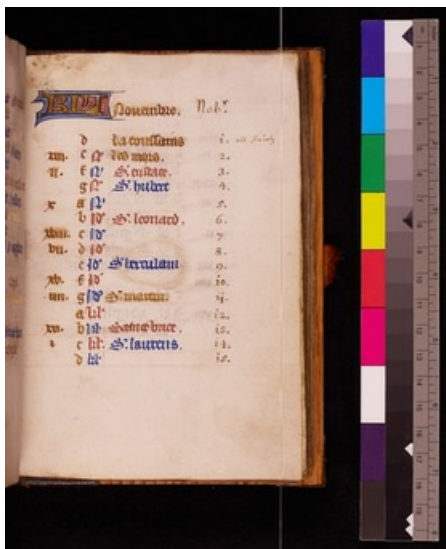 KL Nouembre. Nobr.
d La toussains 1.
xiii. e N les mors. 2.
ii. f N S. eustace. 3.
g N S. hubert 4.
x a N 5.
b id S. leonard. 6.
xviii. c id 7.
vii. d id 8.
e id S. 9.
xv. f id 10.
iiii. g id S. martin. 11.
a kl. 12.
xii. b kl. Saint brice. 13.
i c kl. S. laurens 14.
d kl. 15.